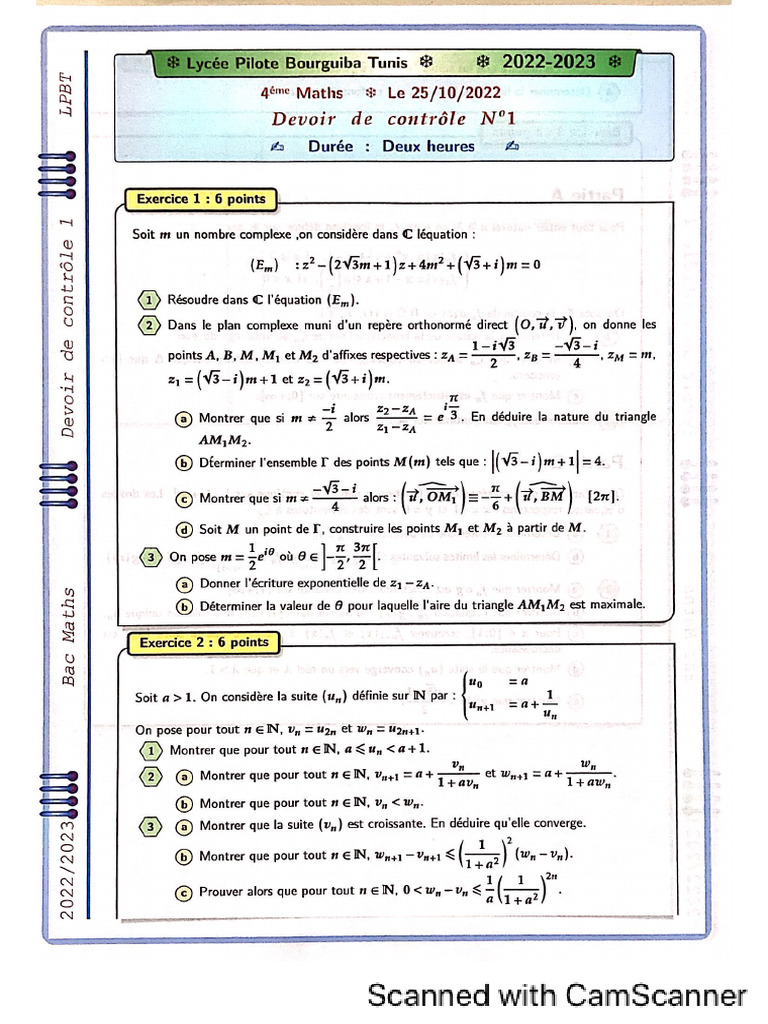 ❄ Lycée Pilote Bourguiba Tunis ❄ ❄ 2022-2023 ❄
4ème Maths ❄ Le 25/10/2022
Devoir de contrôle N°1
✍ Durée : Deux heures ✍
LPBT
Devoir de contrôle 1
Bac Maths
2022/2023
Exercice 1 : 6 points
Soit m un nombre complexe ,on considère dans ℂ léquation :
(E_m) : z² − (2√3m+1)z + 4m² + (√3+i)m = 0
1 Résoudre dans ℂ l'équation (E_m).
2 Dans le plan complexe muni d'un repère orthonormé direct (O, u⃗, v⃗), on donne les
points A, B, M, M₁ et M₂ d'affixes respectives : z_A = (1−i√3)/2, z_B = (−√3−i)/4, z_M = m,
z₁ = (√3−i)m+1 et z₂ = (√3+i)m.
a Montrer que si m ≠ −i/2 alors (z₂−z_A)/(z₁−z_A) = e^{iπ/3}. En déduire la nature du triangle
AM₁M₂.
b Déerminer l'ensemble Γ des points M(m) tels que : |(√3−i)m+1| = 4.
c Montrer que si m ≠ (−√3−i)/4 alors : (u⃗, OM₁⃗) ≡ −π/6 + (u⃗, BM⃗) [2π].
d Soit M un point de Γ, construire les points M₁ et M₂ à partir de M.
3 On pose m = 1/2 e^{iθ} où θ ∈ ]−π/2, 3π/2[.
a Donner l'écriture exponentielle de z₁−z_A.
b Déterminer la valeur de θ pour laquelle l'aire du triangle AM₁M₂ est maximale.
Exercice 2 : 6 points
Soit a > 1. On considère la suite (u_n) définie sur ℕ par : { u₀ = a
u_{n+1} = a + 1/u_n
On pose pour tout n ∈ ℕ, v_n = u_{2n} et w_n = u_{2n+1}.
1 Montrer que pour tout n ∈ ℕ, a ⩽ u_n < a+1.
2 a Montrer que pour tout n ∈ ℕ, v_{n+1} = a + v_n/(1+av_n) et w_{n+1} = a + w_n/(1+aw_n).
b Montrer que pour tout n ∈ ℕ, v_n < w_n.
3 a Montrer que la suite (v_n) est croissante. En déduire qu'elle converge.
b Montrer que pour tout n ∈ ℕ, w_{n+1} − v_{n+1} ⩽ (1/(1+a²))² (w_n − v_n).
c Prouver alors que pour tout n ∈ ℕ, 0 < w_n − v_n ⩽ 1/a (1/(1+a²))^{2n}.
Scanned with CamScanner